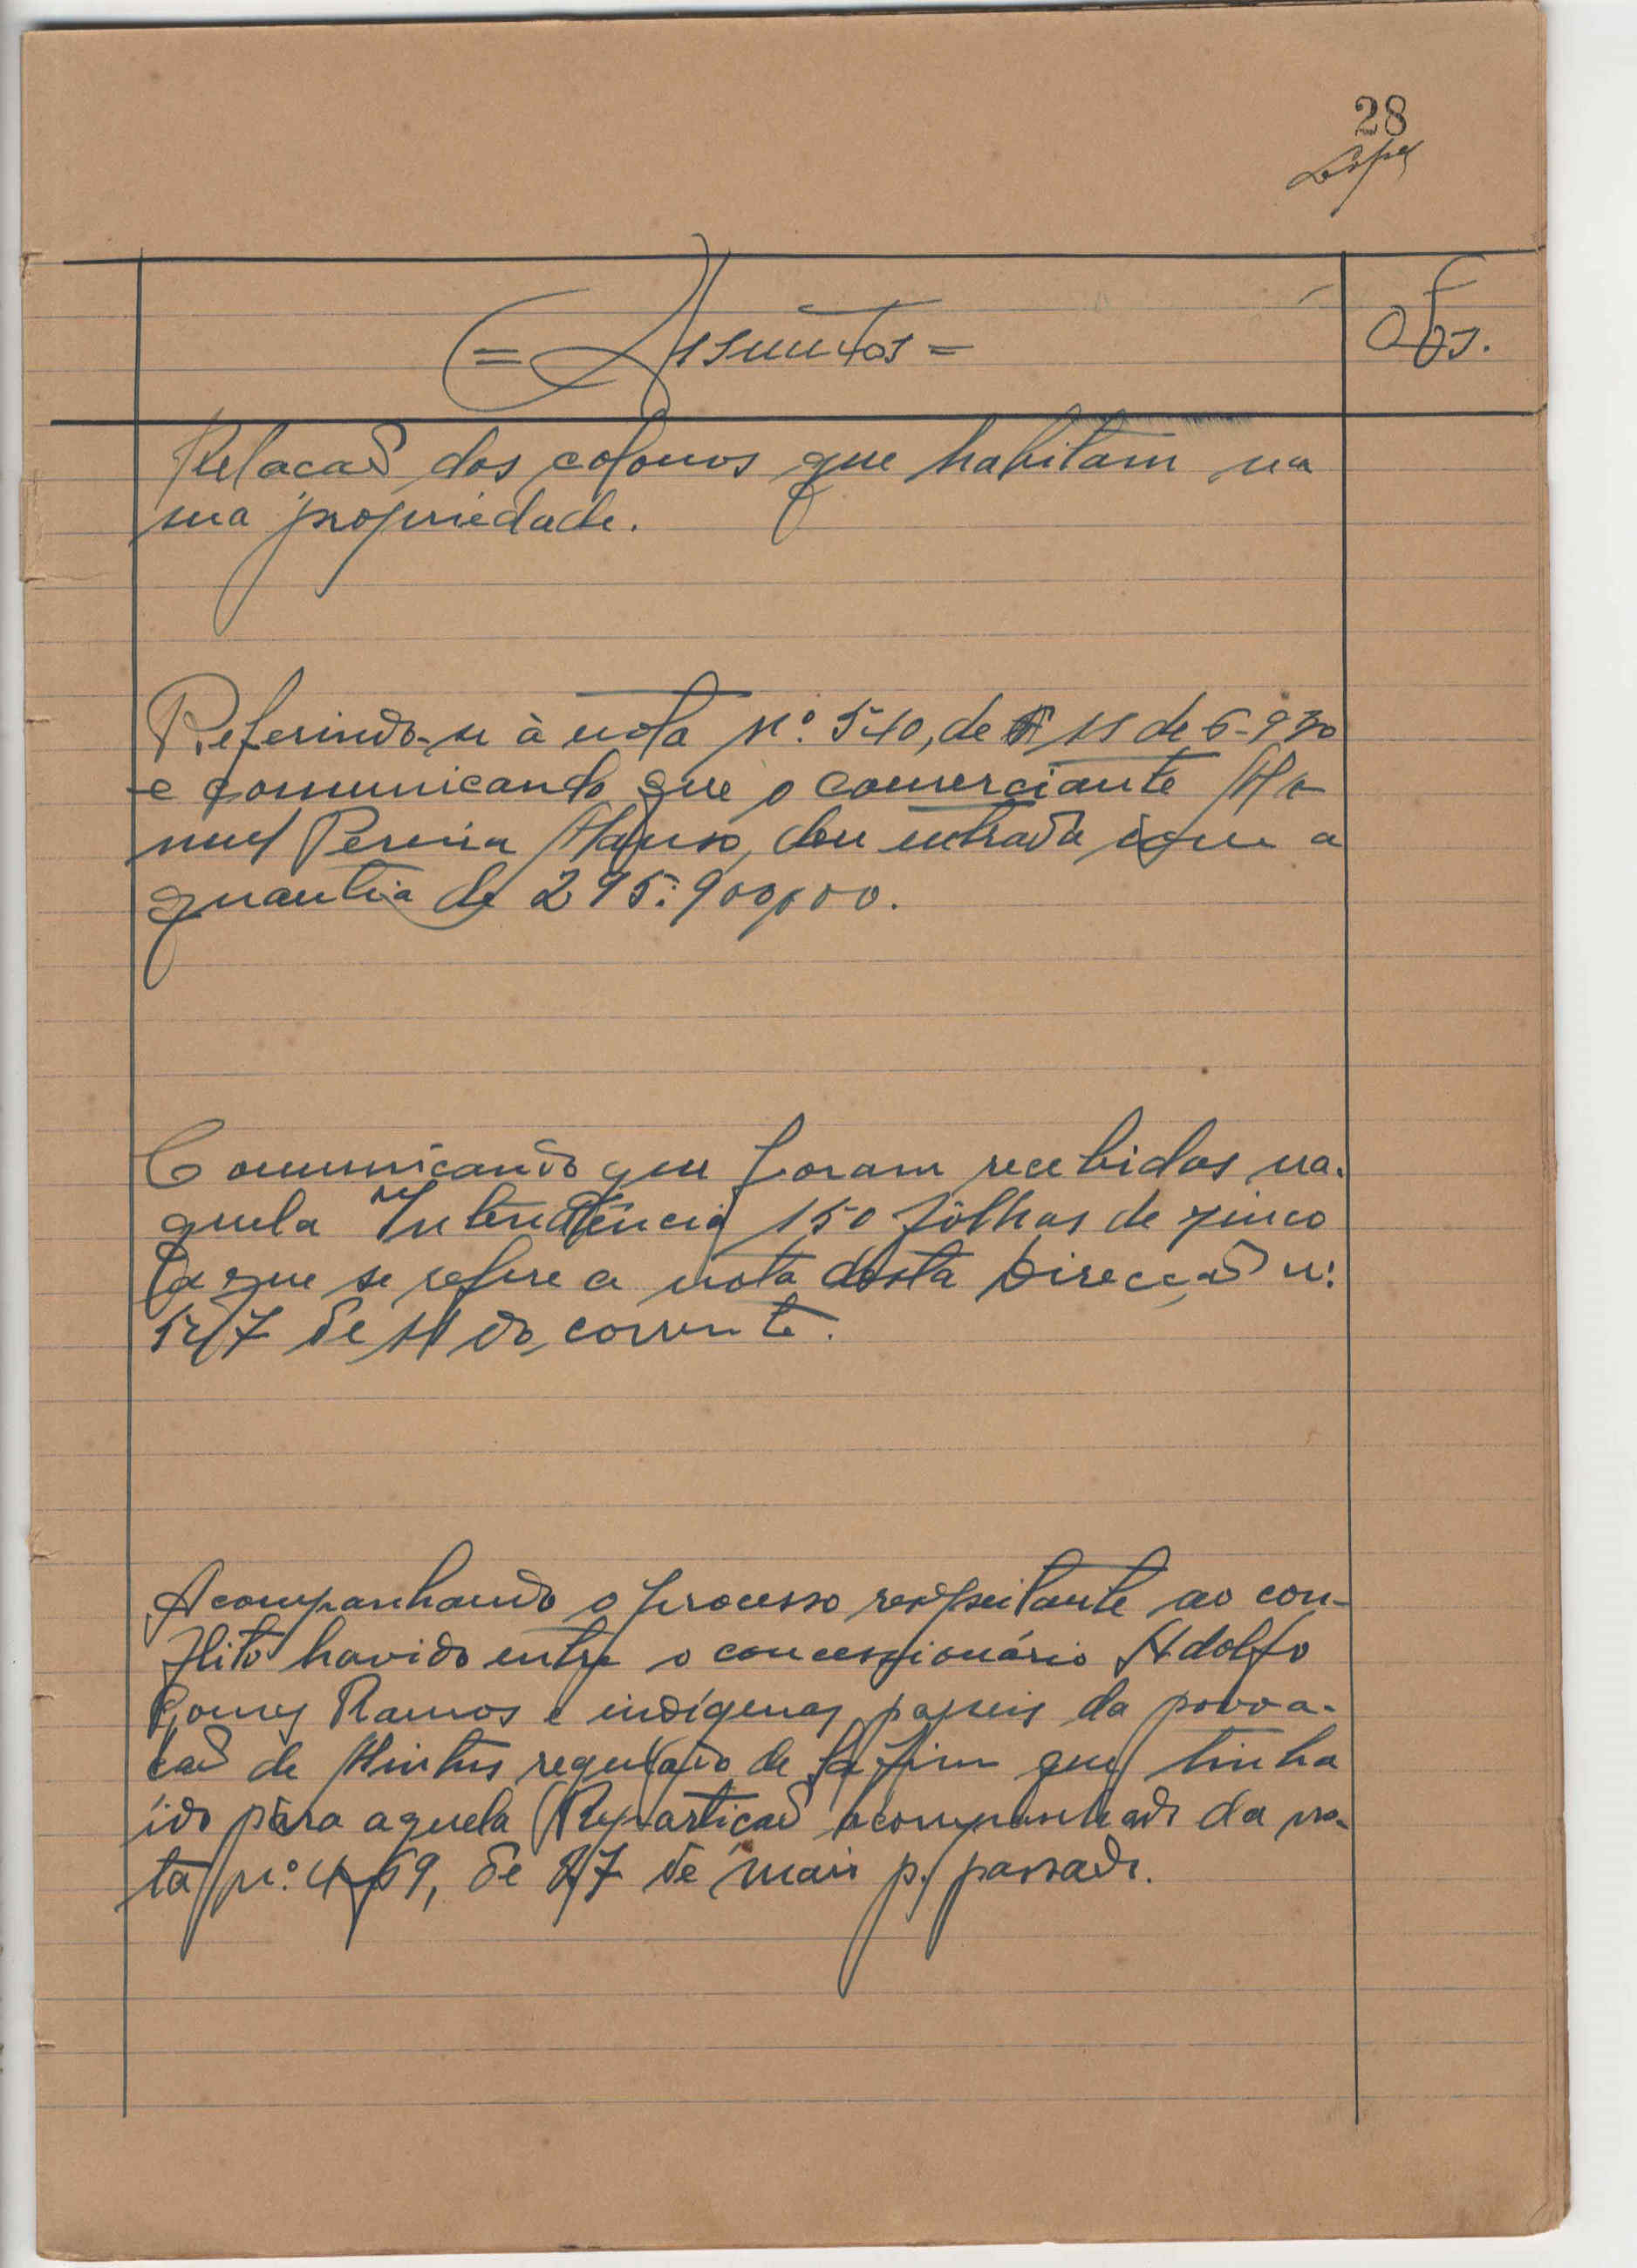 28
Lopes
= Assuntos =
Obs.
Relacaõ dos colonos que habitam na
sua propriedade.
Referindo-se à nota Nº. 540, de 11 de 6-930
e comunicando que o comerciante Ma
nuel Pereira Afonso, deu entrada com a
quantia de 295:900$00.
Comunicando que foram recebidas na-
quela Intendência 150 fôlhas de zinco
a que se refere a nota desta Direcçaõ nº
527 de 11 do corrente.
Acompanhando o processo respeitante ao con-
flito havido entre o concessionário Adolfo
Gomes Ramos e indígenas papeis da povoa-
caõ de regulado de Safim que tinha
ido para aquela Reparticaõ acompanhado da no-
ta nº. 469, de 27 de maio p. passado.